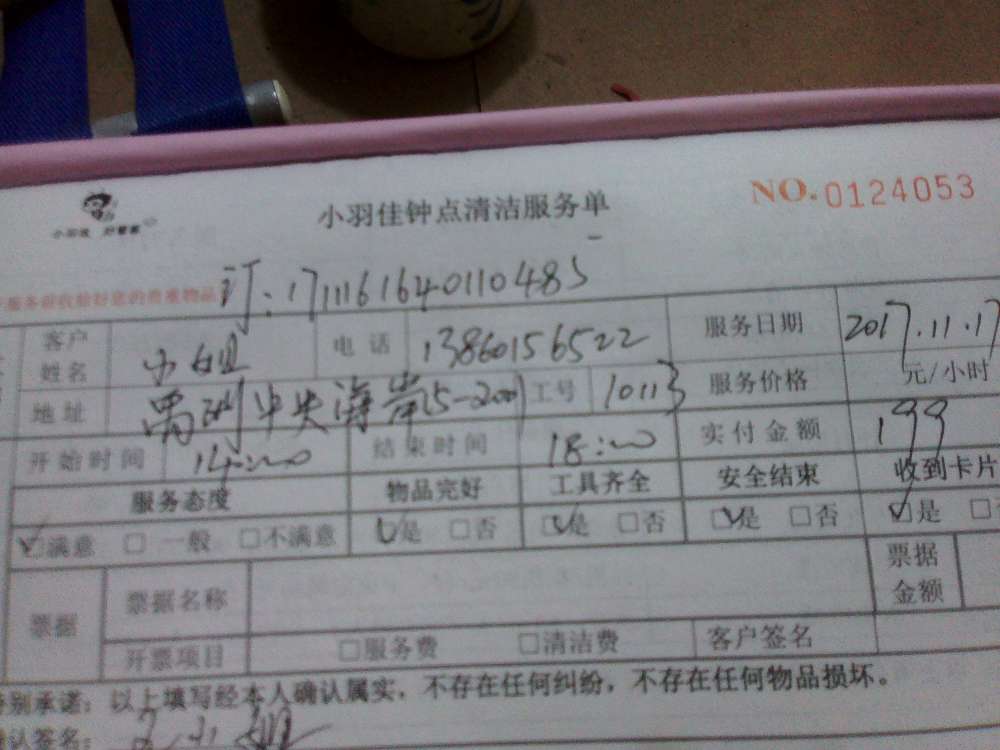 小羽佳 好管家
小羽佳钟点清洁服务单
NO.0124053
服务前收拾好您的贵重物品
订:1711161640110485
客户姓名 小姐 电话 13860156522 服务日期 2017.11.17
地址 禹洲中央海岸15-2001 工号 10113 服务价格 元/小时
开始时间 14:00 结束时间 18:00 实付金额 199
服务态度 物品完好 工具齐全 安全结束 收到卡片
☑满意 □一般 □不满意 ☑是 □否 ☑是 □否 ☑是 □否 ☑是 □
票据 票据名称 票据金额
开票项目 □服务费 □清洁费 客户签名
特别承诺:以上填写经本人确认属实,不存在任何纠纷,不存在任何物品损坏。
确认签名: